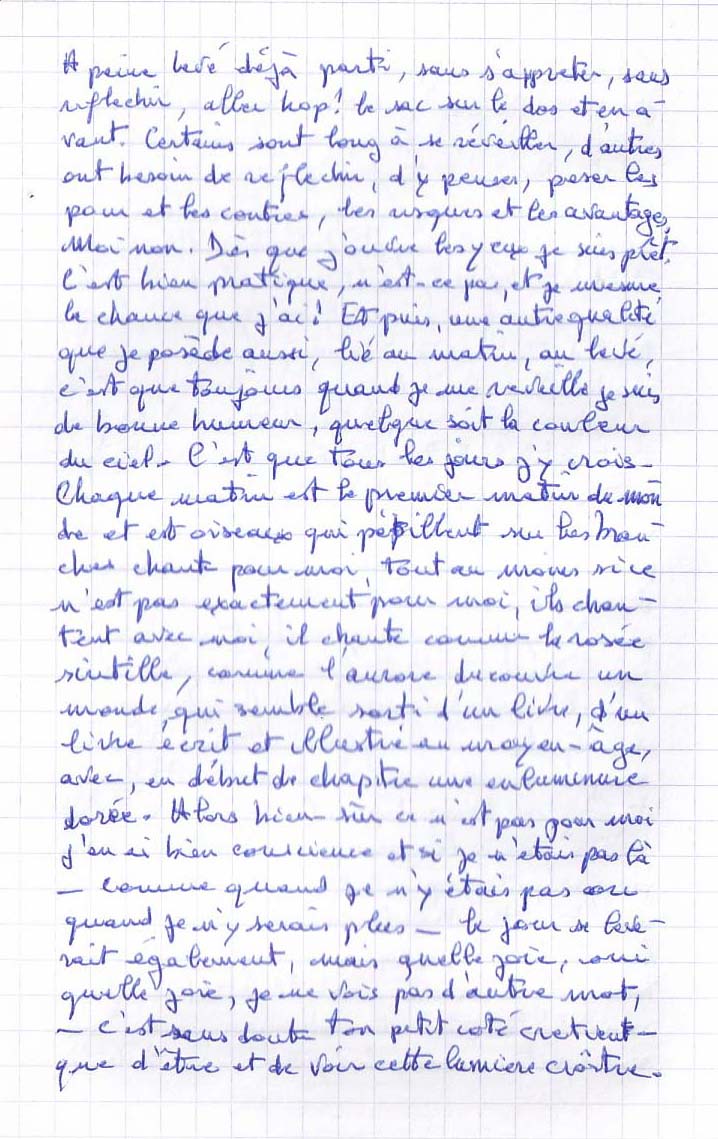 A peine levé déjà parti, sans s'appreter, sans
reflechir, aller hop! le sac sur le dos et en a-
vant. Certains sont long à se réveiller, d'autres
ont besoin de reflechir, d'y penser, peser les
pour et les contres, les risques et les avantages,
Moi non. Dès que j'ouvre les yeux je suis prêt.
C'est bien pratique, n'est-ce pas, et je mesure
la chance que j'ai! Et puis, une autre qualité
que je posède aussi, lié au matin, au levé,
c'est que toujours quand je me reveille je suis
de bonne humeur, quelque soit la couleur
du ciel. C'est que tous les jours j'y crois.
Chaque matin est le premier matin du mon
de et est oiseaux qui pépillent sur les bran-
ches chante pour moi, tout au moins si ce
n'est pas exactement pour moi, ils chan-
tent avec moi, il chante comme la rosée
sintille, comme l'aurore decouvre un
monde, qui semble sorti d'un livre, d'un
livre écrit et illustré au moyen-âge,
avec, en début de chapitre une enluminure
dorée. Alors bien sûr ce n'est pas pour moi
j'en ai bien conscience et si je n'étais pas là
— comme quand je n'y étais pas ou
quand je n'y serais plus — le jour se leve-
rait également, mais quelle joie, oui
quelle joie, je ne vois pas d'autre mot,
— c'est sans doute ton petit coté
que d'être et de voir cette lumiere croître.